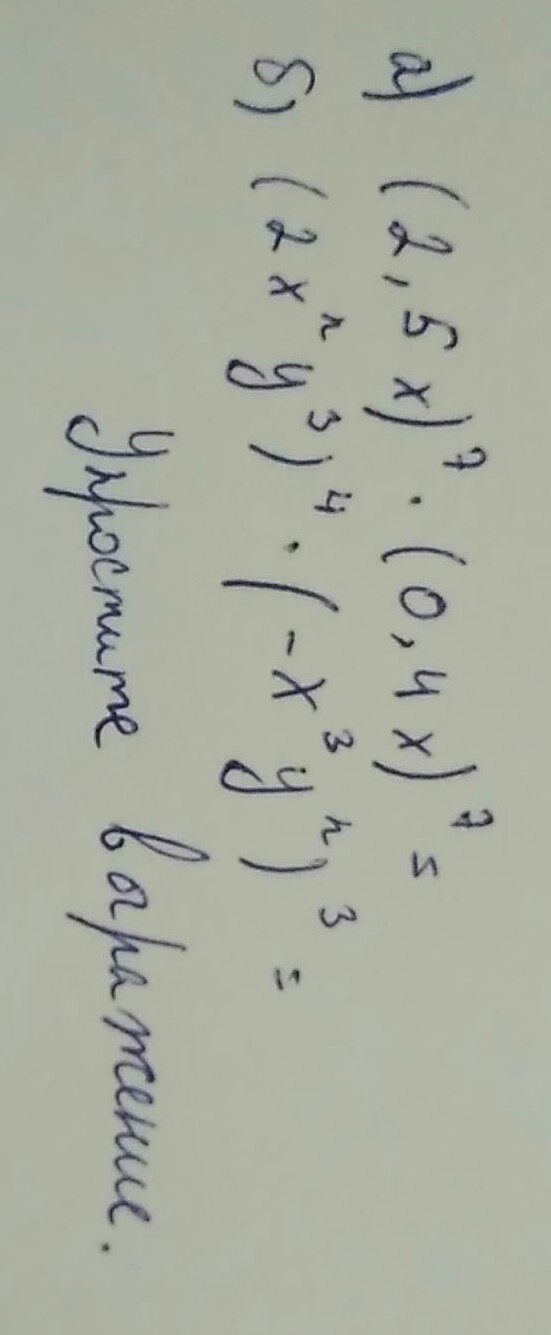 а) (2,5x)⁷ · (0,4x)⁷ =
б) (2xⁿy³)⁴ · (-x³yⁿ)³ =
Упростите выражение.